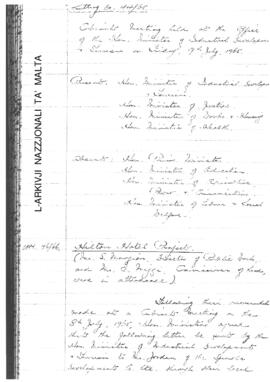 Cabinet Meeting held at the Office
of the Hon. Minister of Industrial Development
& Tourism on Friday, 9th July, 1965.
Present: Hon. Minister of Industrial Development
& Tourism
Hon. Minister of Justice
Hon. Minister of Works & Housing
Hon. Minister of Health
Absent: Hon. Prime Minister
Hon. Minister of Education
Hon. Minister of
Hon. Minister of Labour & Social
Welfare
L-ARKIVJI NAZZJONALI TA' MALTA
Hilton Hotel Project
(Mr. S. Mangion, Director of Public Works,
and Mr. Mizzi, Commissioner of Lands,
were in attendance)
Following their
made at a Cabinet Meeting on
8th July, 1965, Hon. Ministers agreed
that the following letter be sent by the
Hon. Minister of Industrial Development
& Tourism to Mr. of the
Developments Co Ltd. through their local